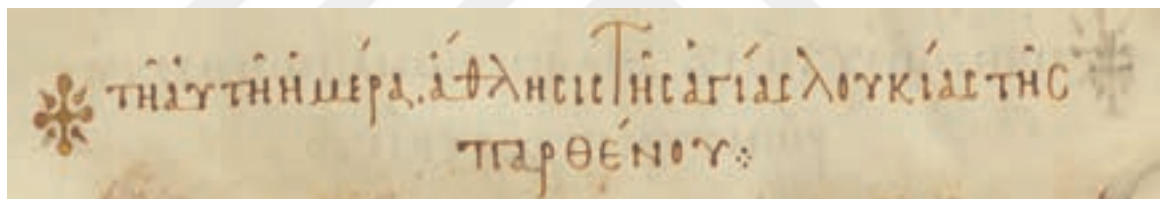 τῆ αὐτῆ ἡμέρα. ἄθλησις τῆς ἁγίας λουκίας τῆς
παρθένου: